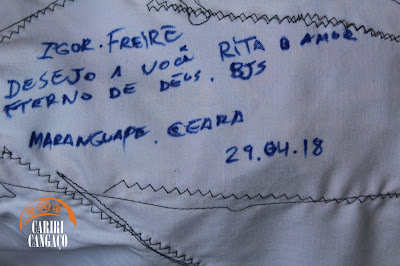 IGOR. FREIRE
DESEJO A VOCÊ RITA O AMOR
ETERNO DE DEUS. BJS
MARANGUAPE. CEARA
29.04.18
CARIRI
CANGAÇO